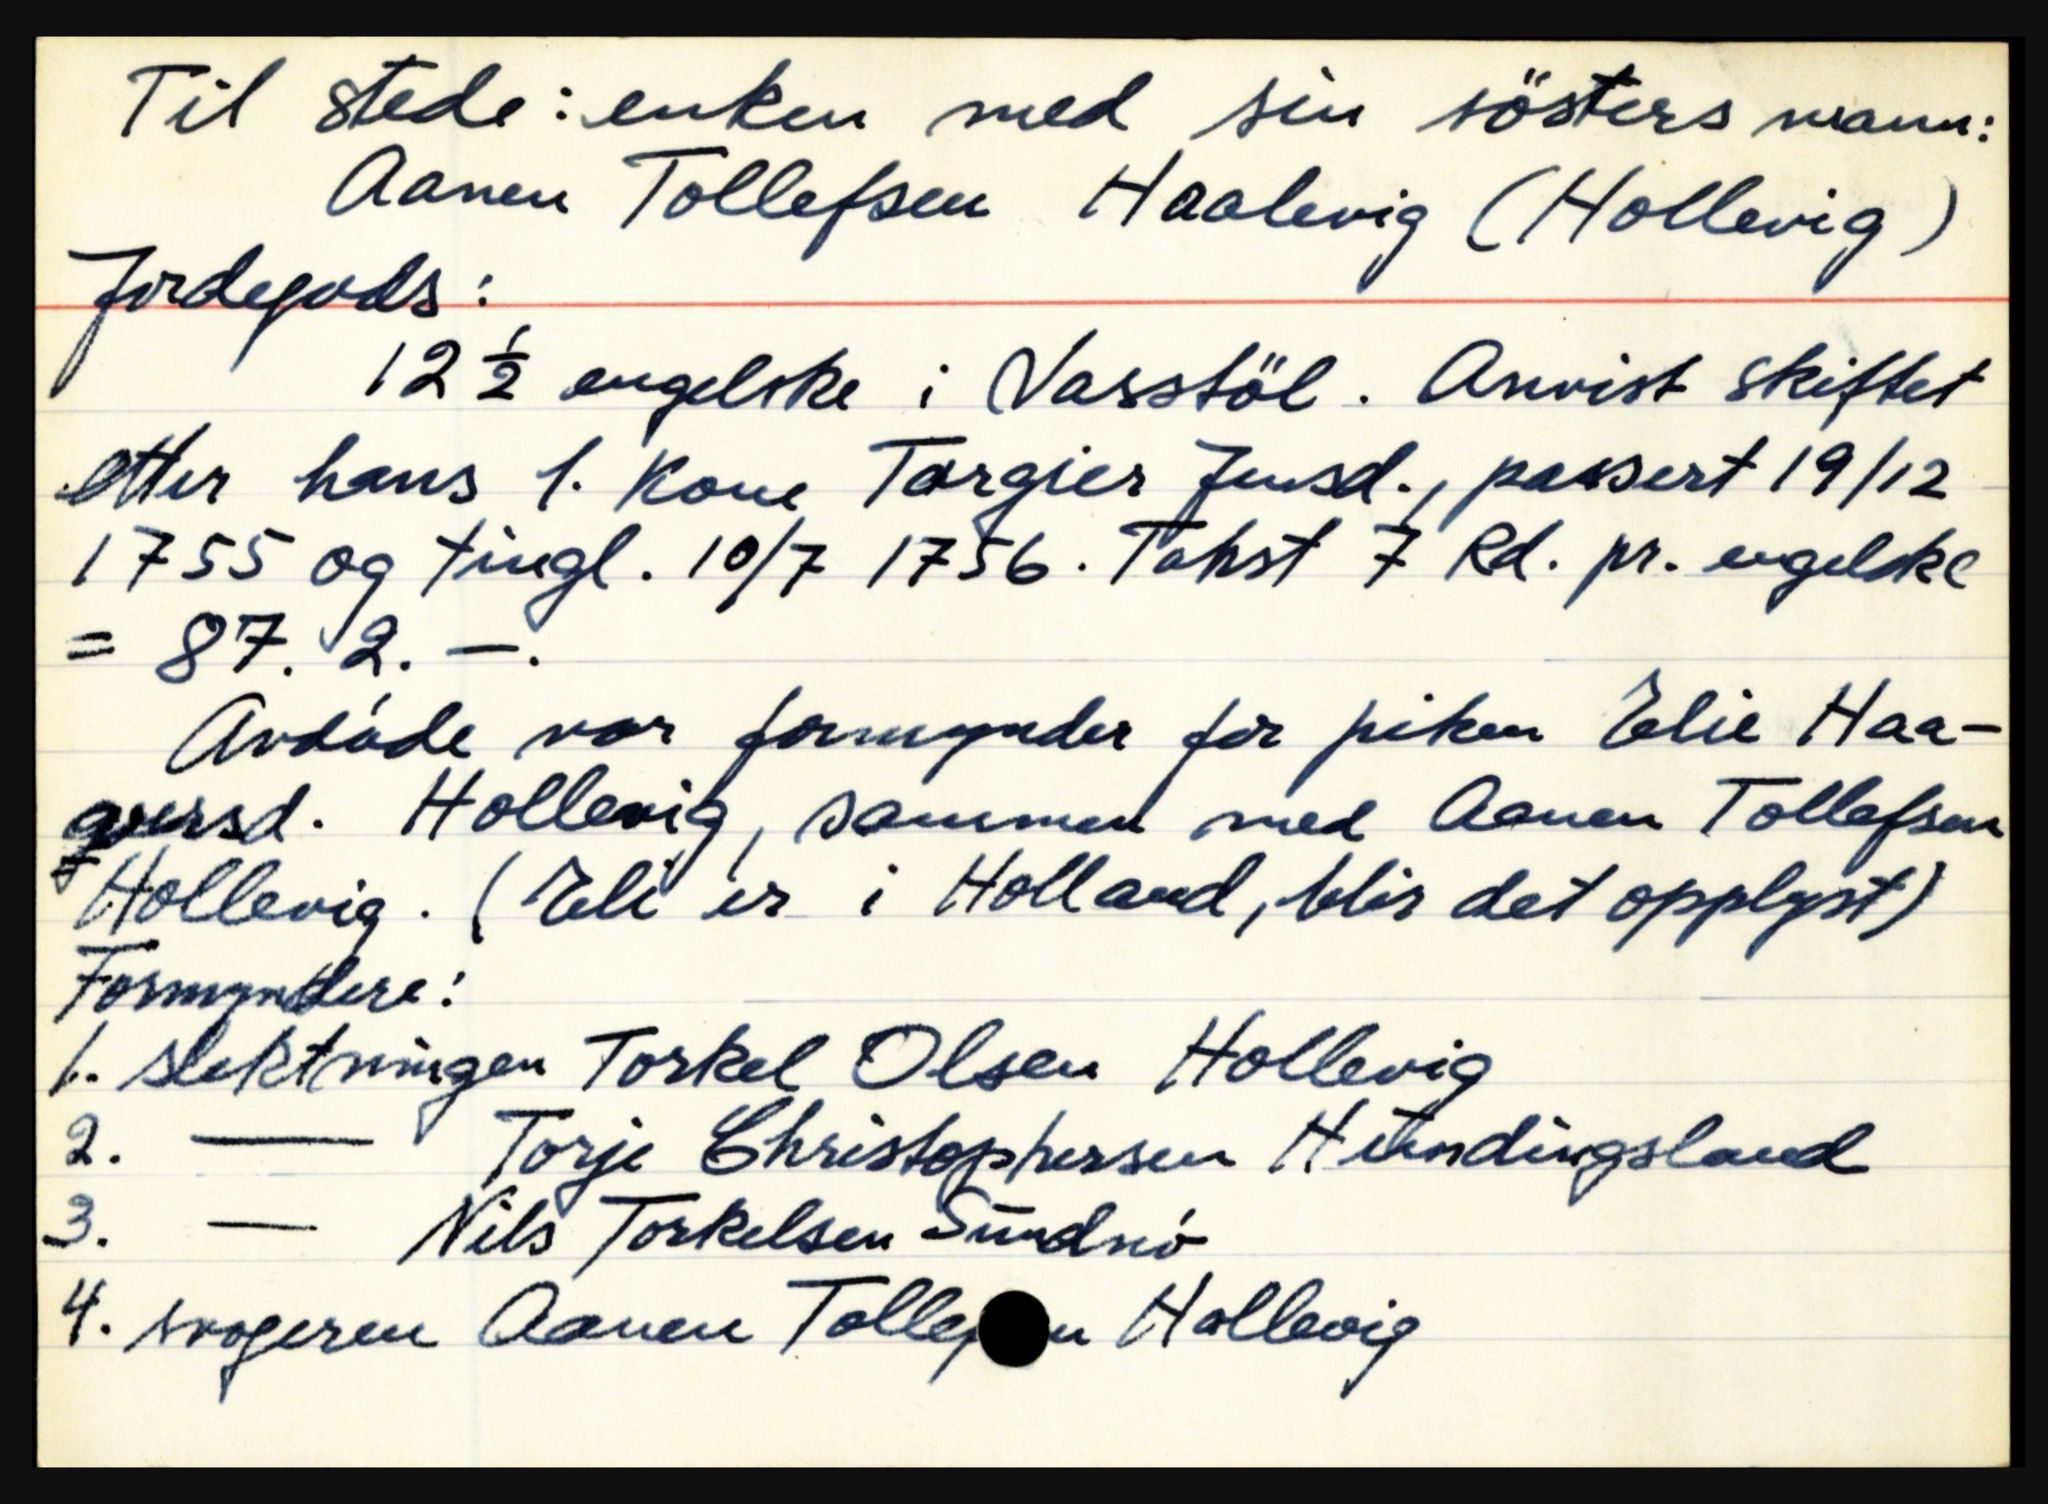 Til stede: enken med sin sösters mann:
Aanen Tollefsen Haalevig (Hollevig)
Jordegods:
12 1/2 engelske i Vasstöl. Anvist skiftet
etter hans 1. kone Torgier Jensd., passert 19/12
1755 og tingl. 10/7 1756. Takst 7 Rd. pr. engelske
= 87. 2. —.
Avdöde var formynder for piken Elie Haa-
gversd. Hollevig, sammen med Aanen Tollefsen
Hollevig. (Eli er i Holland, blir det opplyst)
Formyndere:
1. slektningen Torkel Olsen Hollevig
2. — Torje Christophersen Hundingsland
3. — Nils Torkelsen Sundnö
4. svogeren Aanen Hollevig